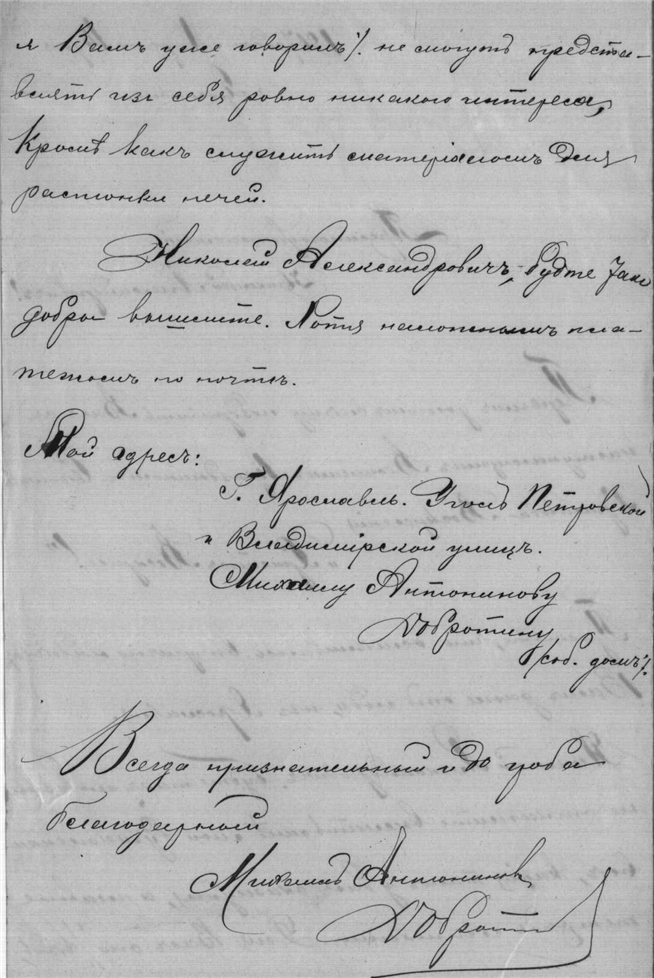 я Вамъ уже говорилъ /. не могутъ предста-
влять изъ себя ровно никакого интереса,
Кромѣ какъ служить матеріаломъ для
растопки печей.
Николай Александровичъ, будте таки
добры вышлите. Хотя наложнымъ пла-
тежомъ по почтѣ.
Мой адресъ:
Г. Ярославль. Уголъ Петровской
и Владимірской улицъ.
Михаилу Антонинову
Добротину
/соб. домъ/.
Всегда признательный и до гроба
благодарный
Михаилъ Антониновъ
Добротин